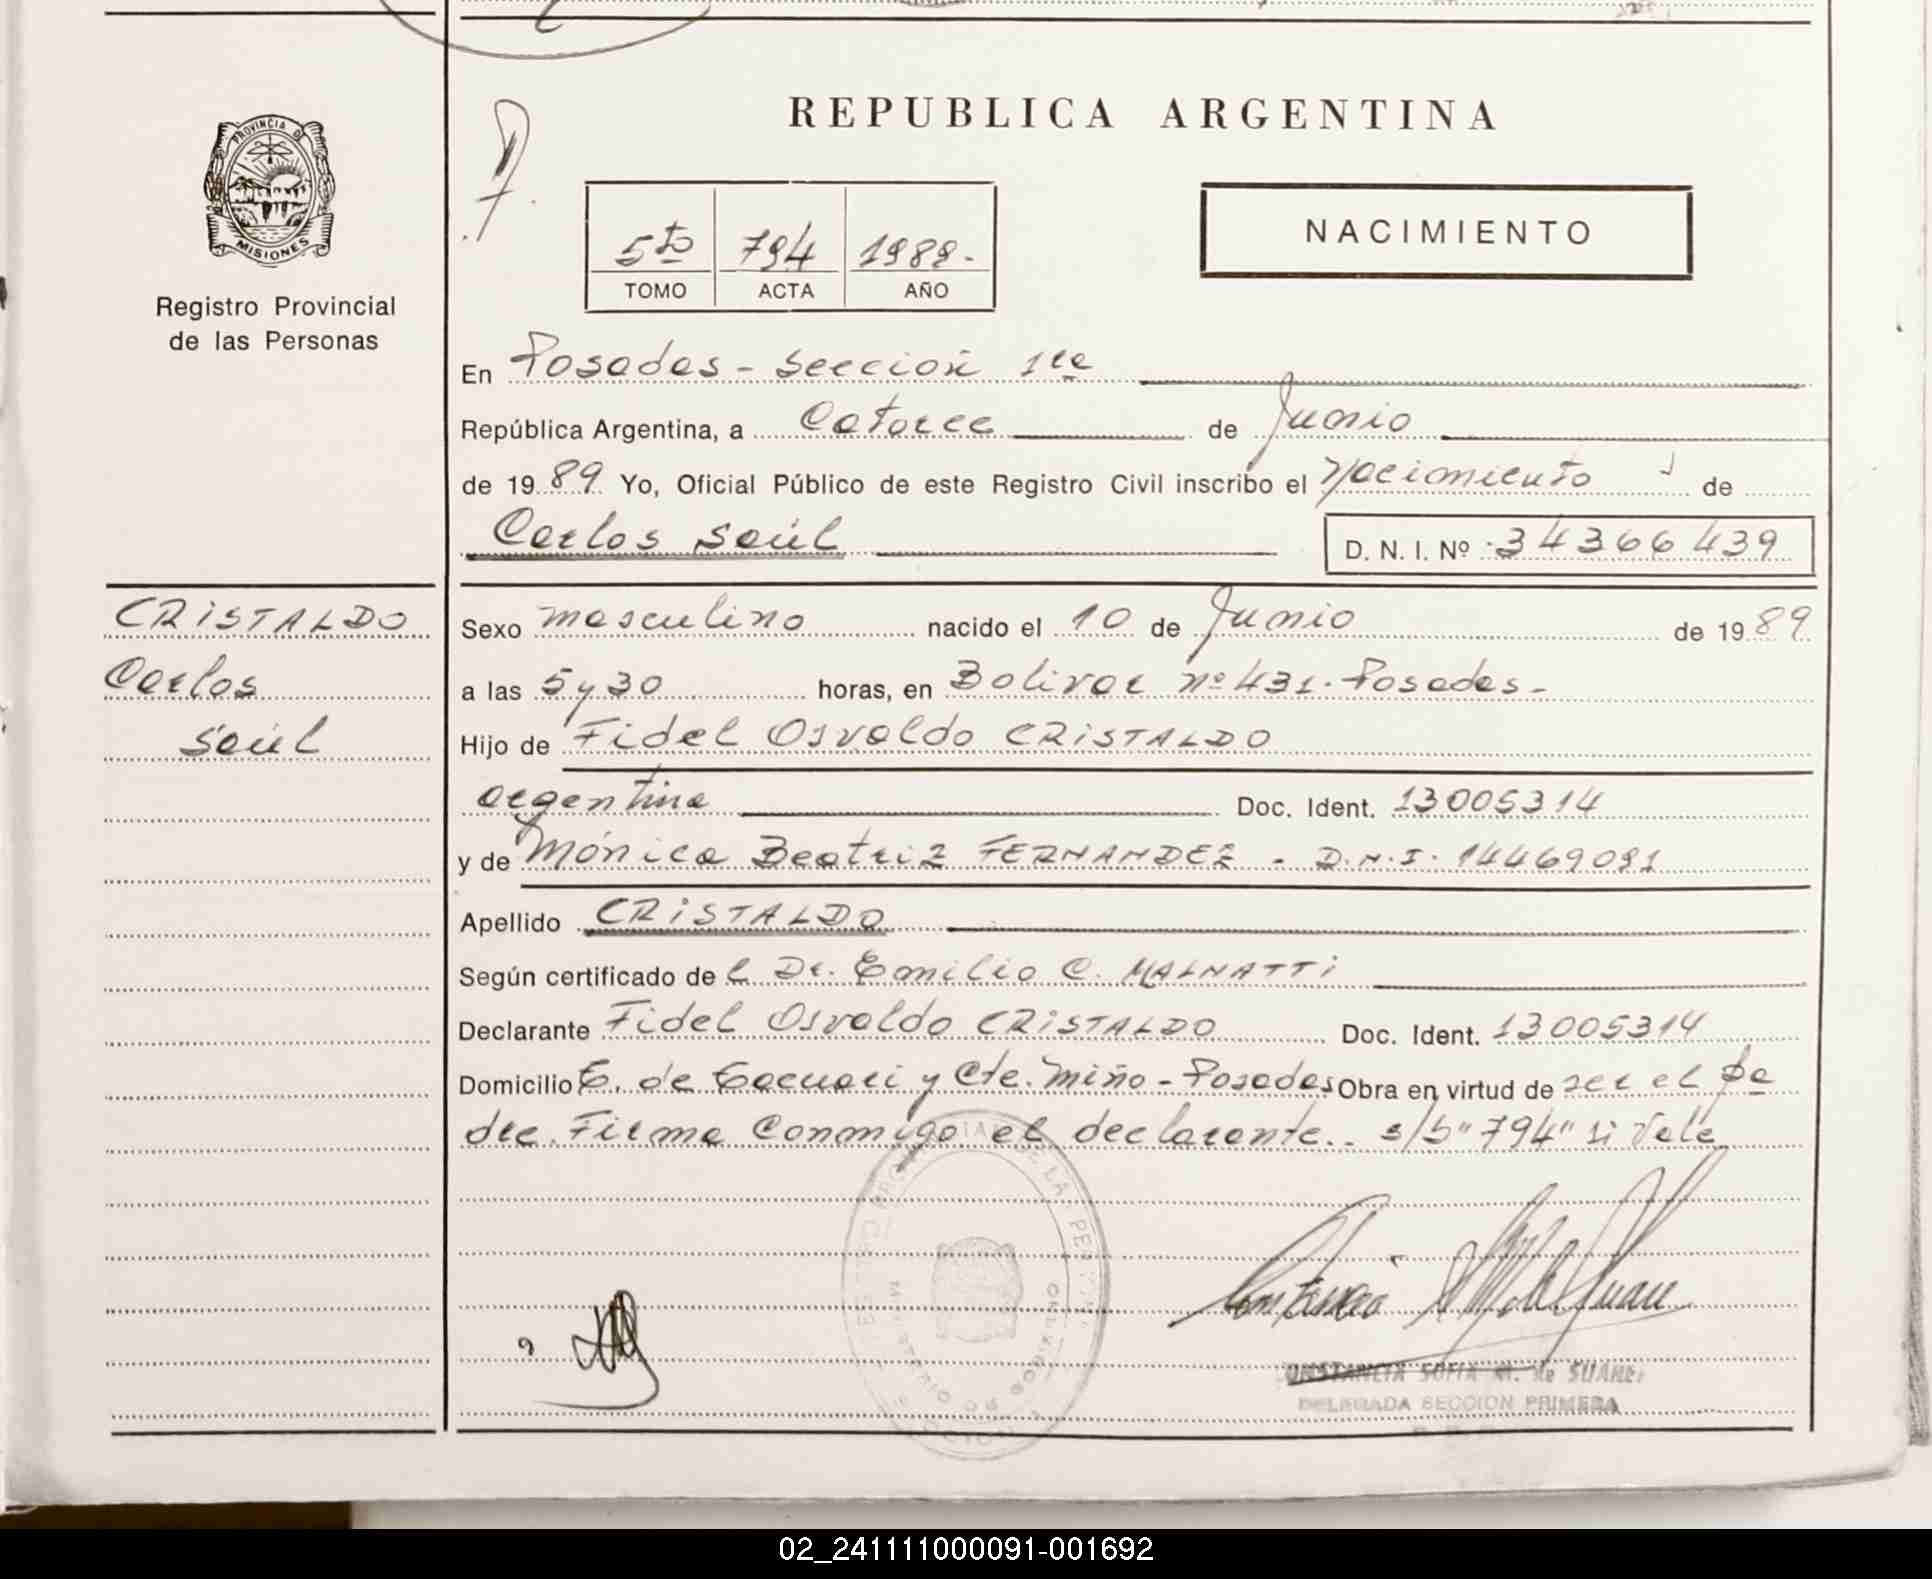 REPUBLICA ARGENTINA
PROVINCIA DE
MISIONES
Registro Provincial
de las Personas
5to 794 1989.-
TOMO ACTA AÑO
NACIMIENTO
En Posadas - Sección 1ra
República Argentina, a Catorce de Junio
de 1989 Yo, Oficial Público de este Registro Civil inscribo el Nacimiento de
Carlos Saúl
D. N. I. Nº 34366439
CRISTALDO
Carlos
Saúl
Sexo masculino nacido el 10 de Junio de 1989
a las 5 y 30 horas, en Bolivar nº 431. Posadas.-
Hijo de Fidel Osvaldo CRISTALDO
argentina Doc. Ident. 13005314
y de Mónica Beatriz FERNANDEZ - D.N.I. 14469091
Apellido CRISTALDO
Según certificado del Dr. Emilio C. MALNATTI
Declarante Fidel Osvaldo CRISTALDO Doc. Ident. 13005314
Domicilio de y Cte. Miño - Posadas Obra en virtud de ser el pa
dre. Firma Conmigo el declarante.. s/b "794" si Vale
CONSTANCIA SOFIA M. de SUAREZ
DELEGADA SECCION PRIMERA
02_241111000091-001692